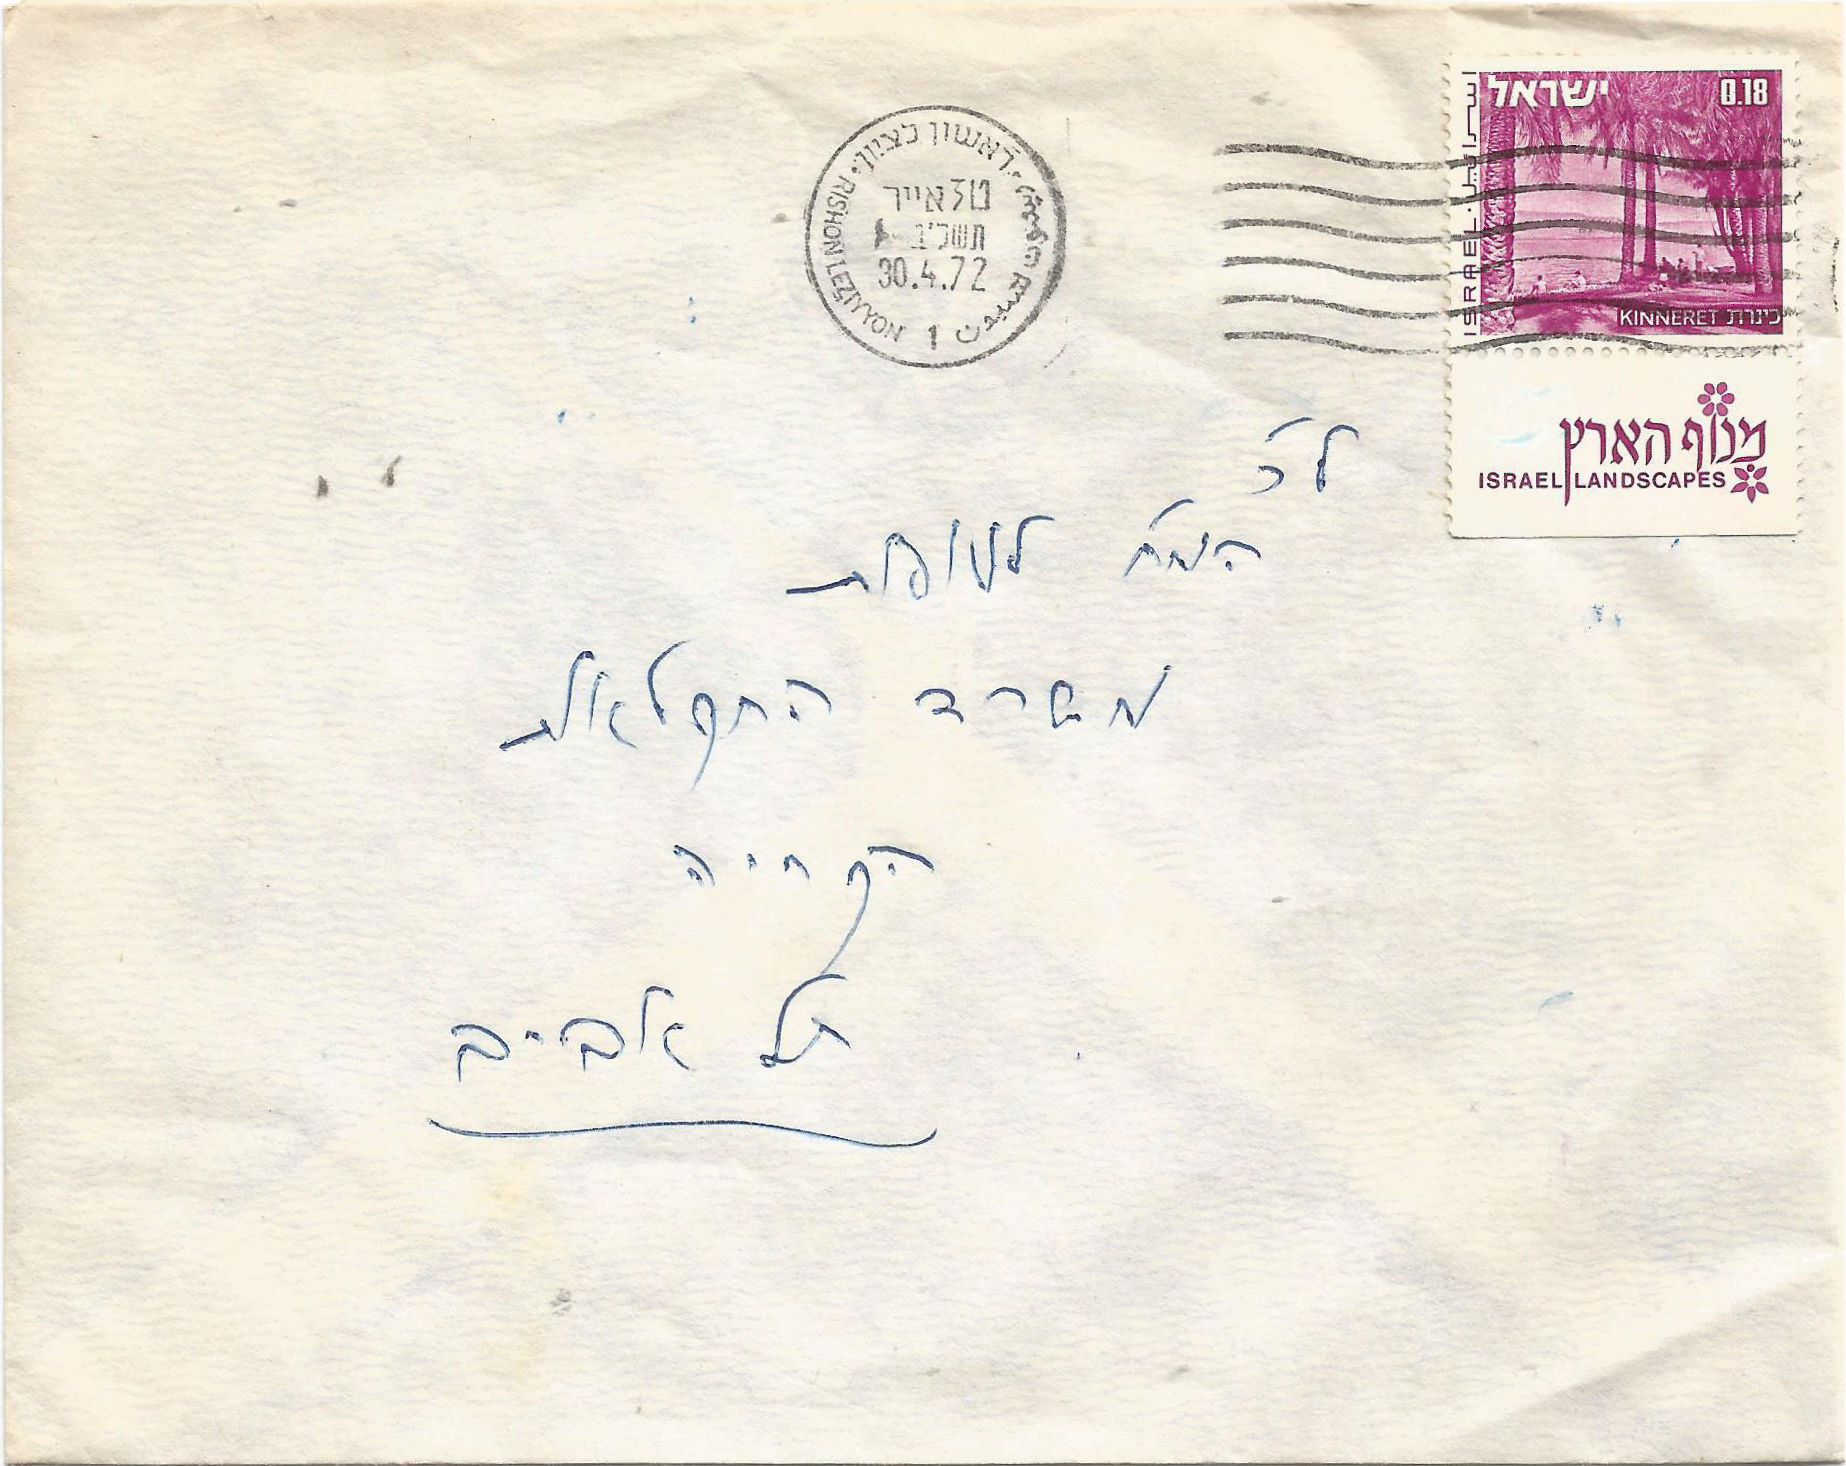 ישראל 0.18
ISRAEL · اسرائيل
KINNERET כינרת
מנוף הארץ
ISRAEL LANDSCAPES
ראשון לציון
RISHON LEZIYYON
טז אייר
תשל"ב
30.4.72
1
לכ'
המח' לעופות
משרד החקלאות
הקריה
תל אביב